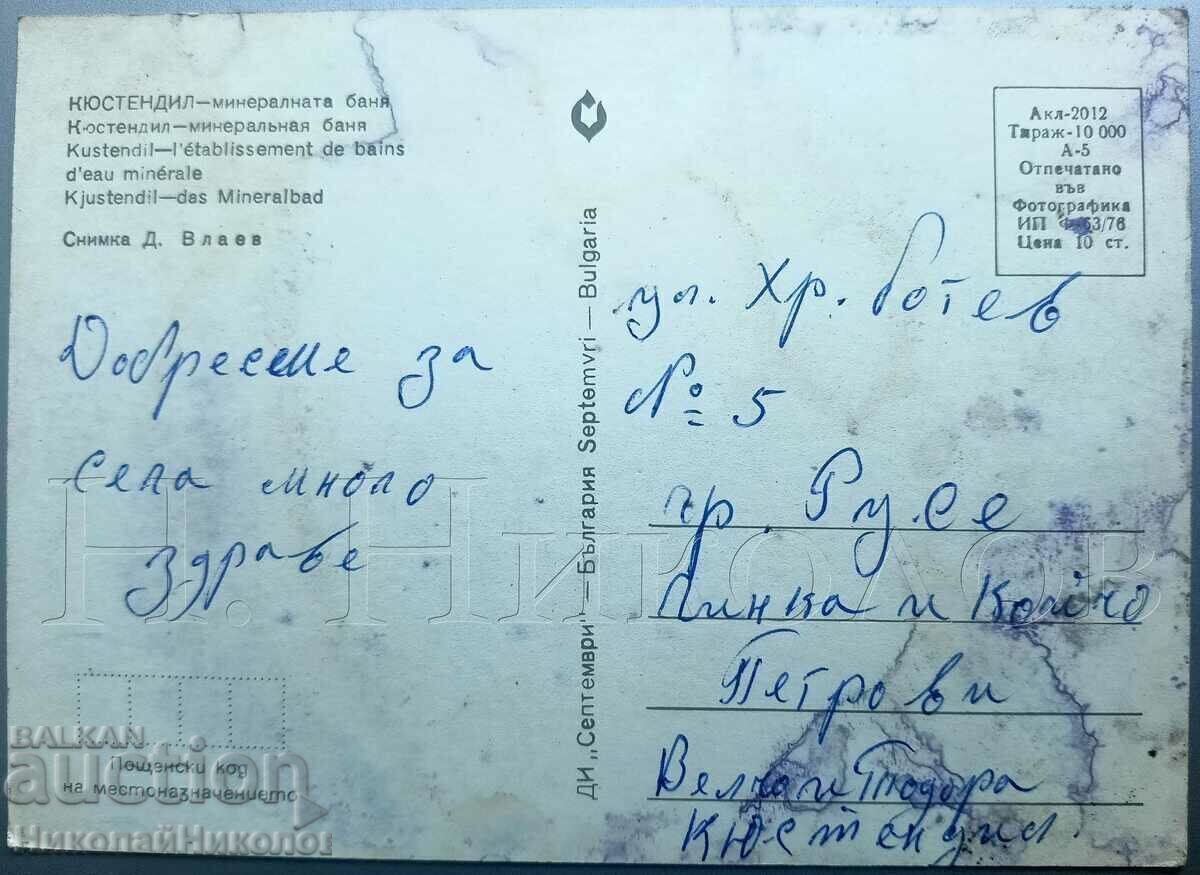 КЮСТЕНДИЛ—минералната баня
Кюстендил—минеральная баня
Kustendil—l'établissement de bains
d'eau minérale
Kjustendil—das Mineralbad
Снимка Д. Влаев
Добре сме за
сега много
здраве
Пощенски код
на местоназначението
ДИ „Септември"—България Septemvri — Bulgaria
Акл-2012
Тираж-10 000
А-5
Отпечатано
във
Фотографика
ИП Ф-63/76
Цена 10 ст.
ул. Хр. Ботев
№ 5
гр. Русе
Пинка и Койчо
Петрови
Велчо и Тодора
Кюстендил
Н. Николов
BALKAN
auction
НиколайНиколов